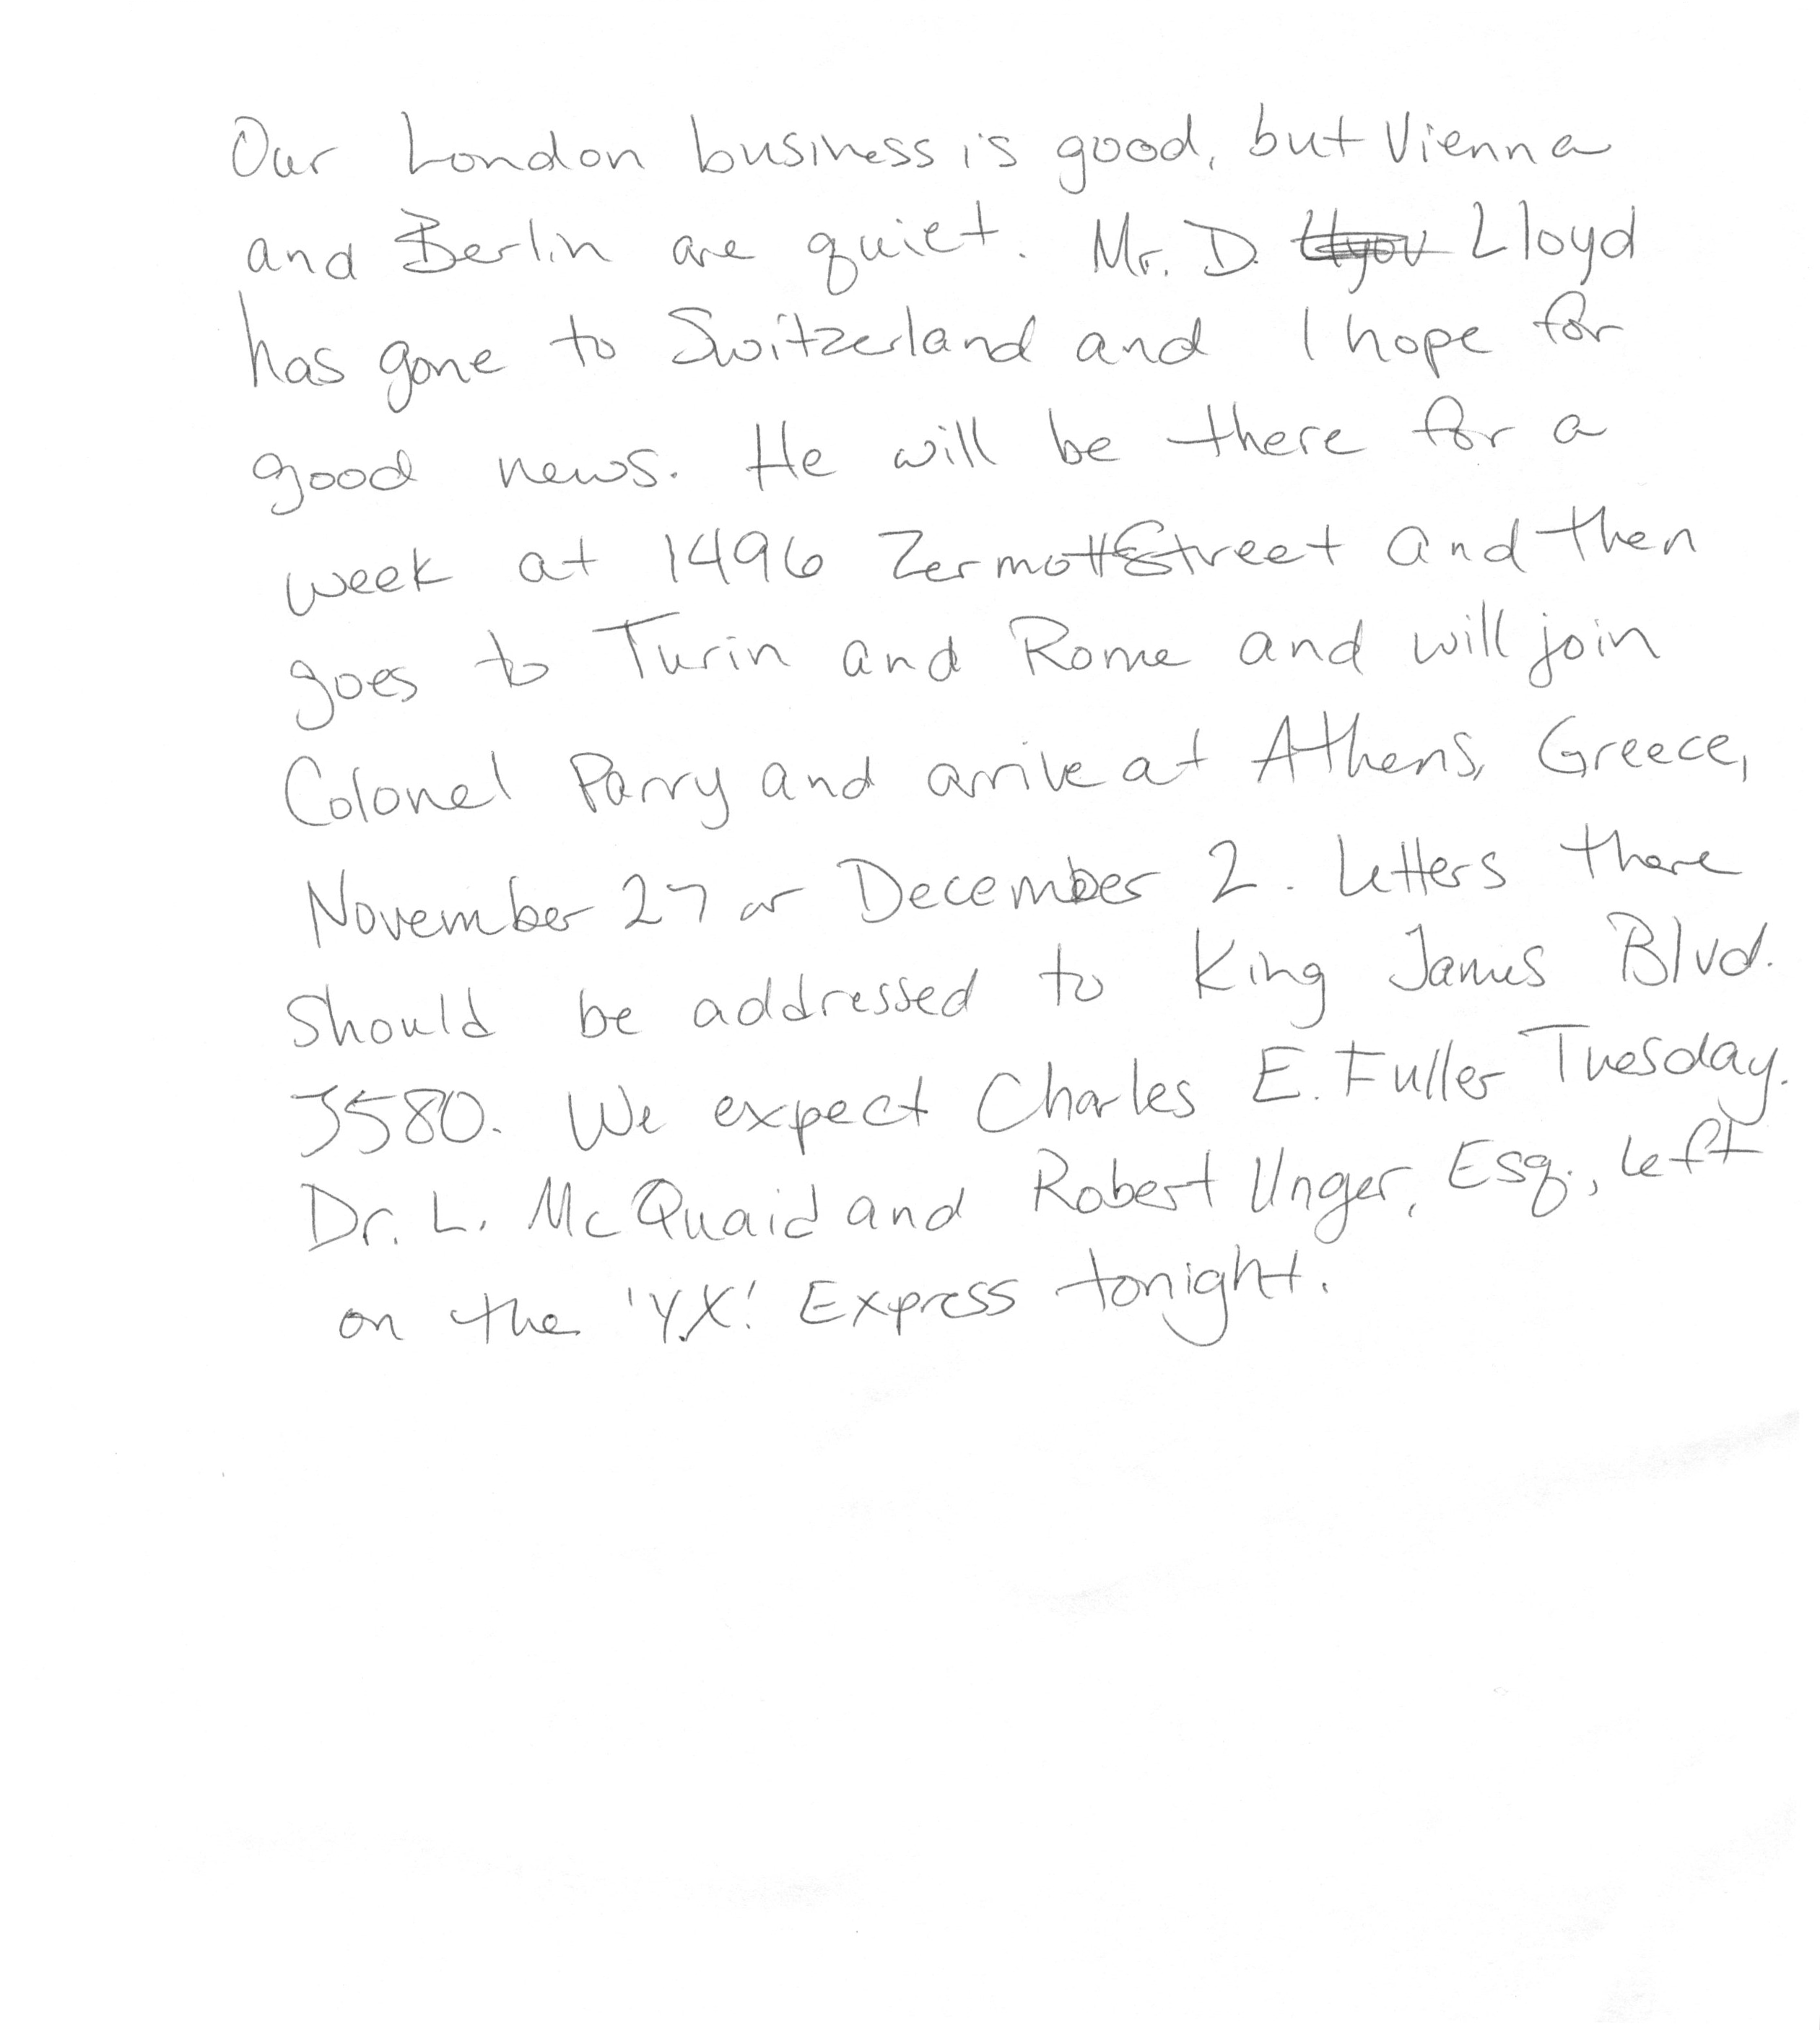 Our London business is good, but Vienna
and Berlin are quiet. Mr. D. Lloyd
has gone to Switzerland and I hope for
good news. He will be there for a
week at 1496 Zermott Street and then
goes to Turin and Rome and will join
Colonel Parry and arrive at Athens, Greece,
November 27 or December 2. Letters there
should be addressed to King James Blvd.
3580. We expect Charles E. Fuller Tuesday.
Dr. L. McQuaid and Robert Unger, Esq., left
on the 'Y.X.' Express tonight.